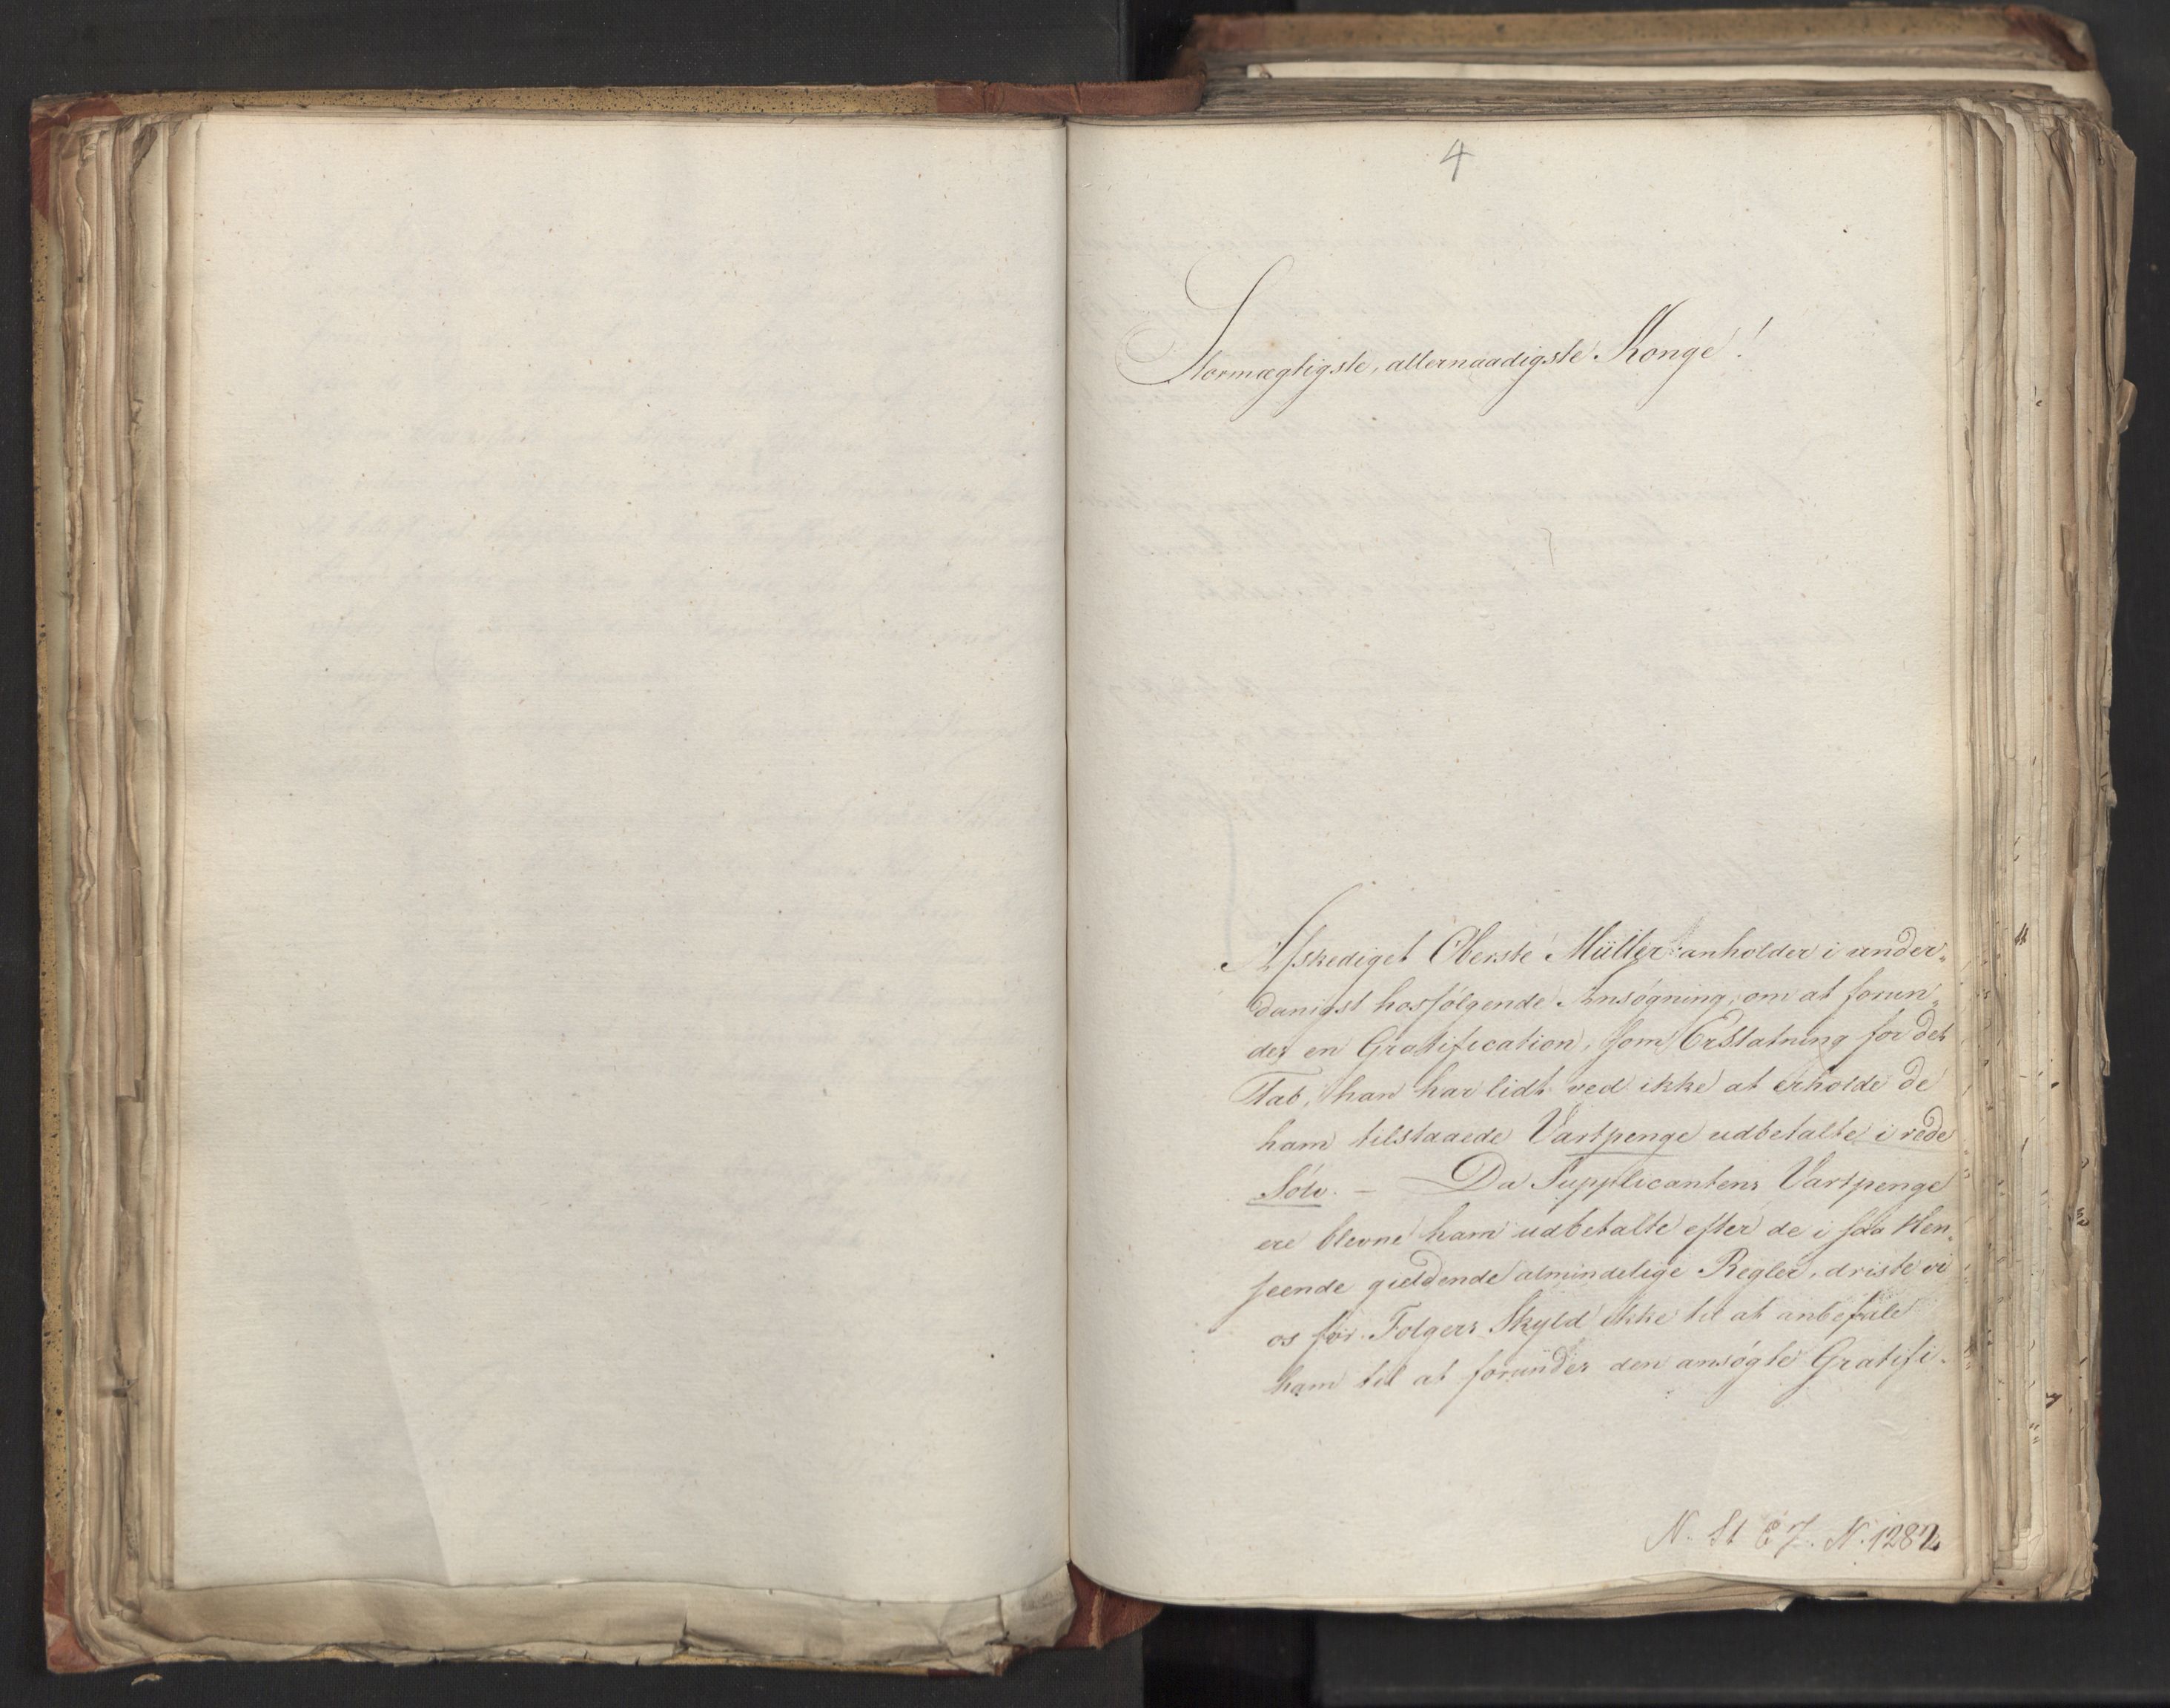 4
Stormægtigste, allernaadigste Konge!
Afskediget Oberste Müller anholder i under„
danigst hosfølgende Ansøgning, om at forun„
des en Gratification, som Erstatning for det
Tab, han har lidt ved ikke at erholde de
ham tilstaaede Vartpenge udbetalte i rede
Sølv. – Da Supplicantens Vartpenge
ere blevne ham udbetalte efter de i saa Hen„
seende gieldende almindelige Regler, driste vi
os for Følgers Skyld ikke til at anbefale
ham til at forundes den ansøgte Gratifi-
N. St E 7. N. 1282